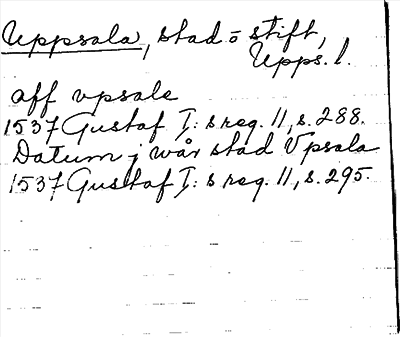 Uppsala, stad o stift,
Upps. l.
aff vpsale
1537 Gustaf I:s reg. 11, s. 288.
Datum j wår stad Vpsala
1537 Gustaf I:s reg. 11, s. 295.